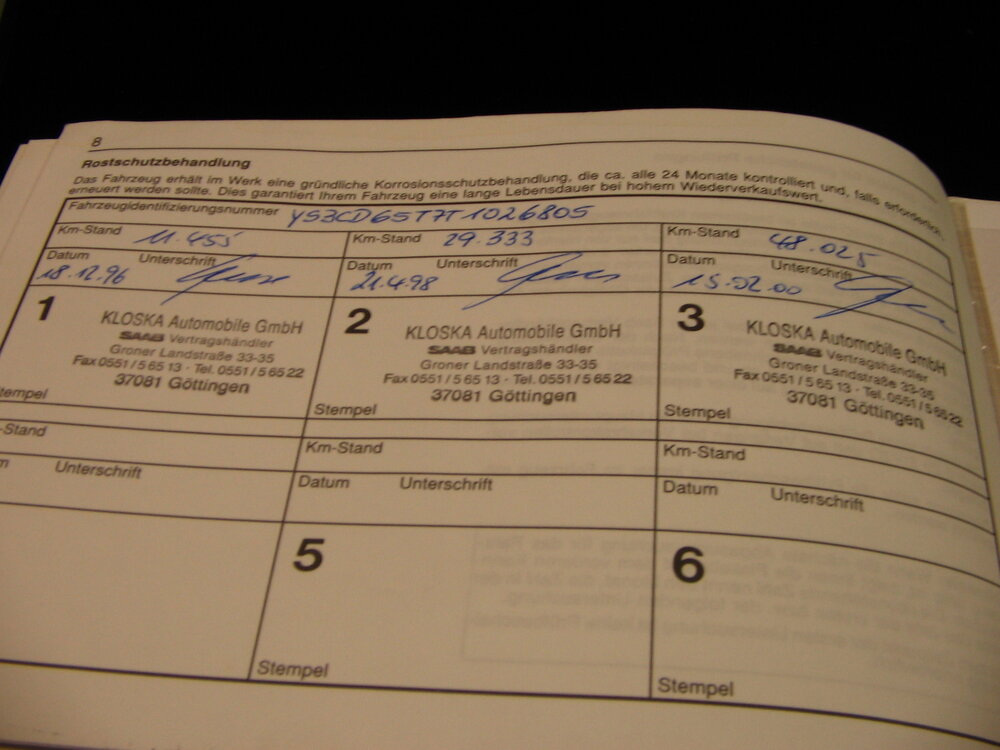 8
Rostschutzbehandlung
Das Fahrzeug erhält im Werk eine gründliche Korrosionsschutzbehandlung, die ca. alle 24 Monate kontrolliert und, falls erforderlich,
erneuert werden sollte. Dies garantiert Ihrem Fahrzeug eine lange Lebensdauer bei hohem Wiederverkaufswert.
Fahrzeugidentifizierungsnummer YS3CD65T7T1026805
Km-Stand 11.455
Datum Unterschrift
18.12.96
1
KLOSKA Automobile GmbH
SAAB Vertragshändler
Groner Landstraße 33-35
Fax 0551/56513 · Tel. 0551/56522
37081 Göttingen
Stempel
Km-Stand 29.333
Datum Unterschrift
21.4.98
2
KLOSKA Automobile GmbH
SAAB Vertragshändler
Groner Landstraße 33-35
Fax 0551/56513 · Tel. 0551/56522
37081 Göttingen
Stempel
Km-Stand 48.025
Datum Unterschrift
15.02.00
3
KLOSKA Automobile GmbH
SAAB Vertragshändler
Groner Landstraße 33-35
Fax 0551/56513 · Tel. 0551/56522
37081 Göttingen
Stempel
-Stand
Unterschrift
Km-Stand
Datum Unterschrift
5
Stempel
Km-Stand
Datum Unterschrift
6
Stempel